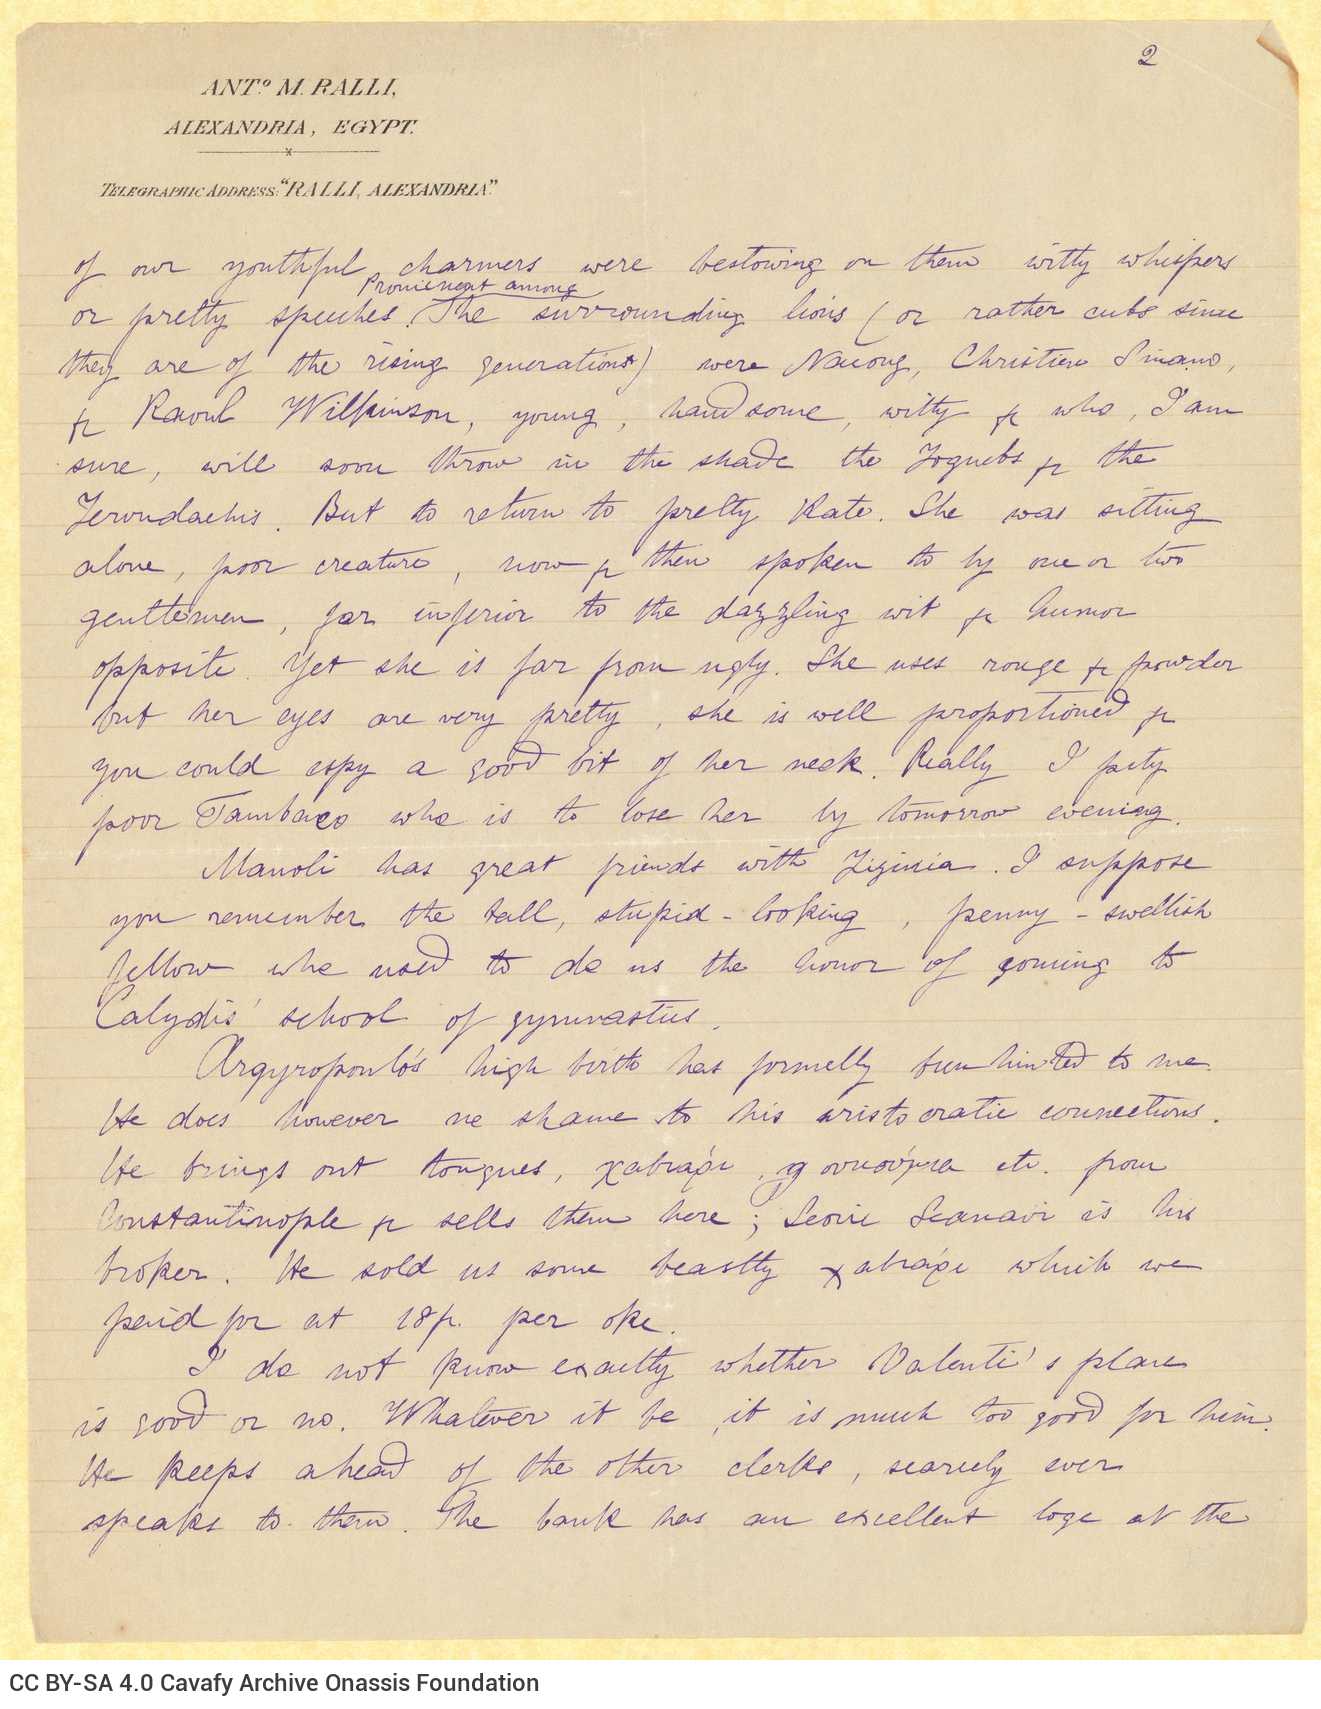 2
ANTº M. RALLI,
ALEXANDRIA, EGYPT.
TELEGRAPHIC ADDRESS: "RALLI, ALEXANDRIA".
of our youthful charmers were bestowing on them witty whispers
Prominent among
or pretty speeches. The surrounding lions (or rather cubs since
they are of the rising generation) were Naoung, Christien Sinano,
& Raoul Wilkinson, young, handsome, witty & who, I am
sure, will soon throw in the shade the Zoguebs & the
Zervudachis. But to return to pretty Kate. She was sitting
alone, poor creature, now & then spoken to by one or two
gentlemen, far inferior to the dazzling wit & humor
opposite. Yet she is far from ugly. She uses rouge & powder
but her eyes are very pretty, she is well proportioned &
you could espy a good bit of her neck. Really I pity
poor Tambaco who is to lose her by tomorrow evening.
Manoli has great friends with Zizinia. I suppose
you remember the tall, stupid-looking, penny-swellish
fellow who used to do us the honor of coming to
Calydis' school of gymnastics.
Argyropoulo's high birth has formelly been hinted to me.
He does however no shame to his aristocratic connections.
He brings out tongues, χαβιάρι, etc. from
Constantinople & sells them here; Leoni Scanavi is his
broker. He sold us some beastly χαβιάρι which we
paid for at 18p. per oke.
I do not know exactly whether Valenti's place
is good or no. Whatever it be, it is much too good for him.
He keeps ahead of the other clerks, scarcely ever
speaks to them. The bank has an excellent loge at the
CC BY-SA 4.0 Cavafy Archive Onassis Foundation